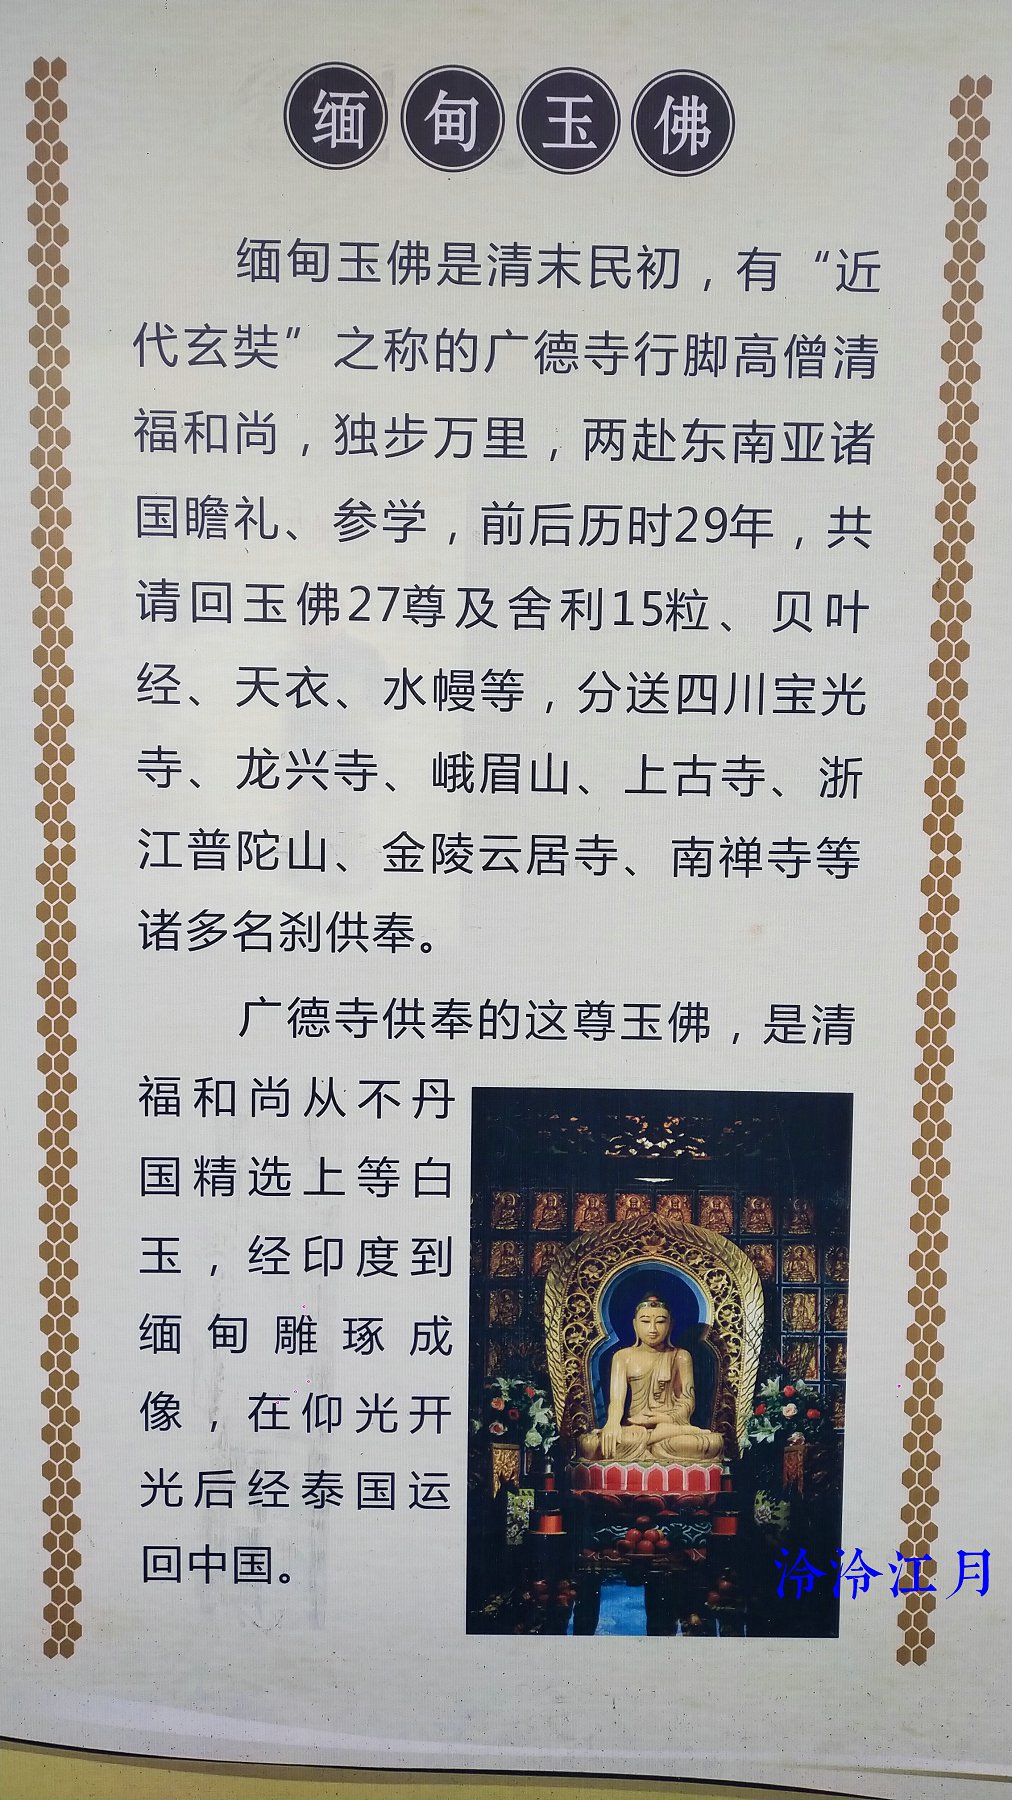 缅甸玉佛
缅甸玉佛是清末民初，有“近
代玄奘”之称的广德寺行脚高僧清
福和尚，独步万里，两赴东南亚诸
国瞻礼、参学，前后历时29年，共
请回玉佛27尊及舍利15粒、贝叶
经、天衣、水幔等，分送四川宝光
寺、龙兴寺、峨眉山、上古寺、浙
江普陀山、金陵云居寺、南禅寺等
诸多名刹供奉。
广德寺供奉的这尊玉佛，是清
福和尚从不丹
国精选上等白
玉，经印度到
缅甸雕琢成
像，在仰光开
光后经泰国运
回中国。
泠泠江月